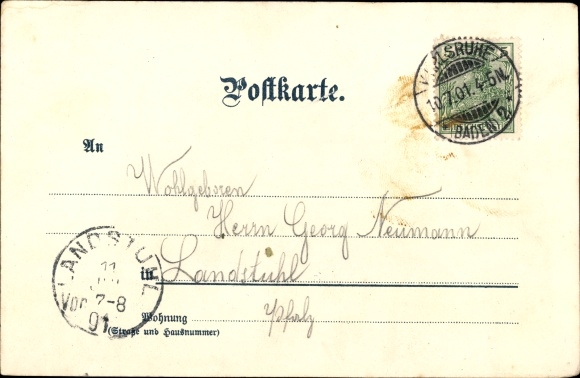 KARLSRUHE
10.7.01. 4-5N.
(BADEN) 2.
Postkarte.
An
Wohlgeboren
Herrn Georg Neumann
in Landstuhl
Pfalz
LANDSTUHL
11
Vor 7-8
01
Wohnung
(Straße und Hausnummer)